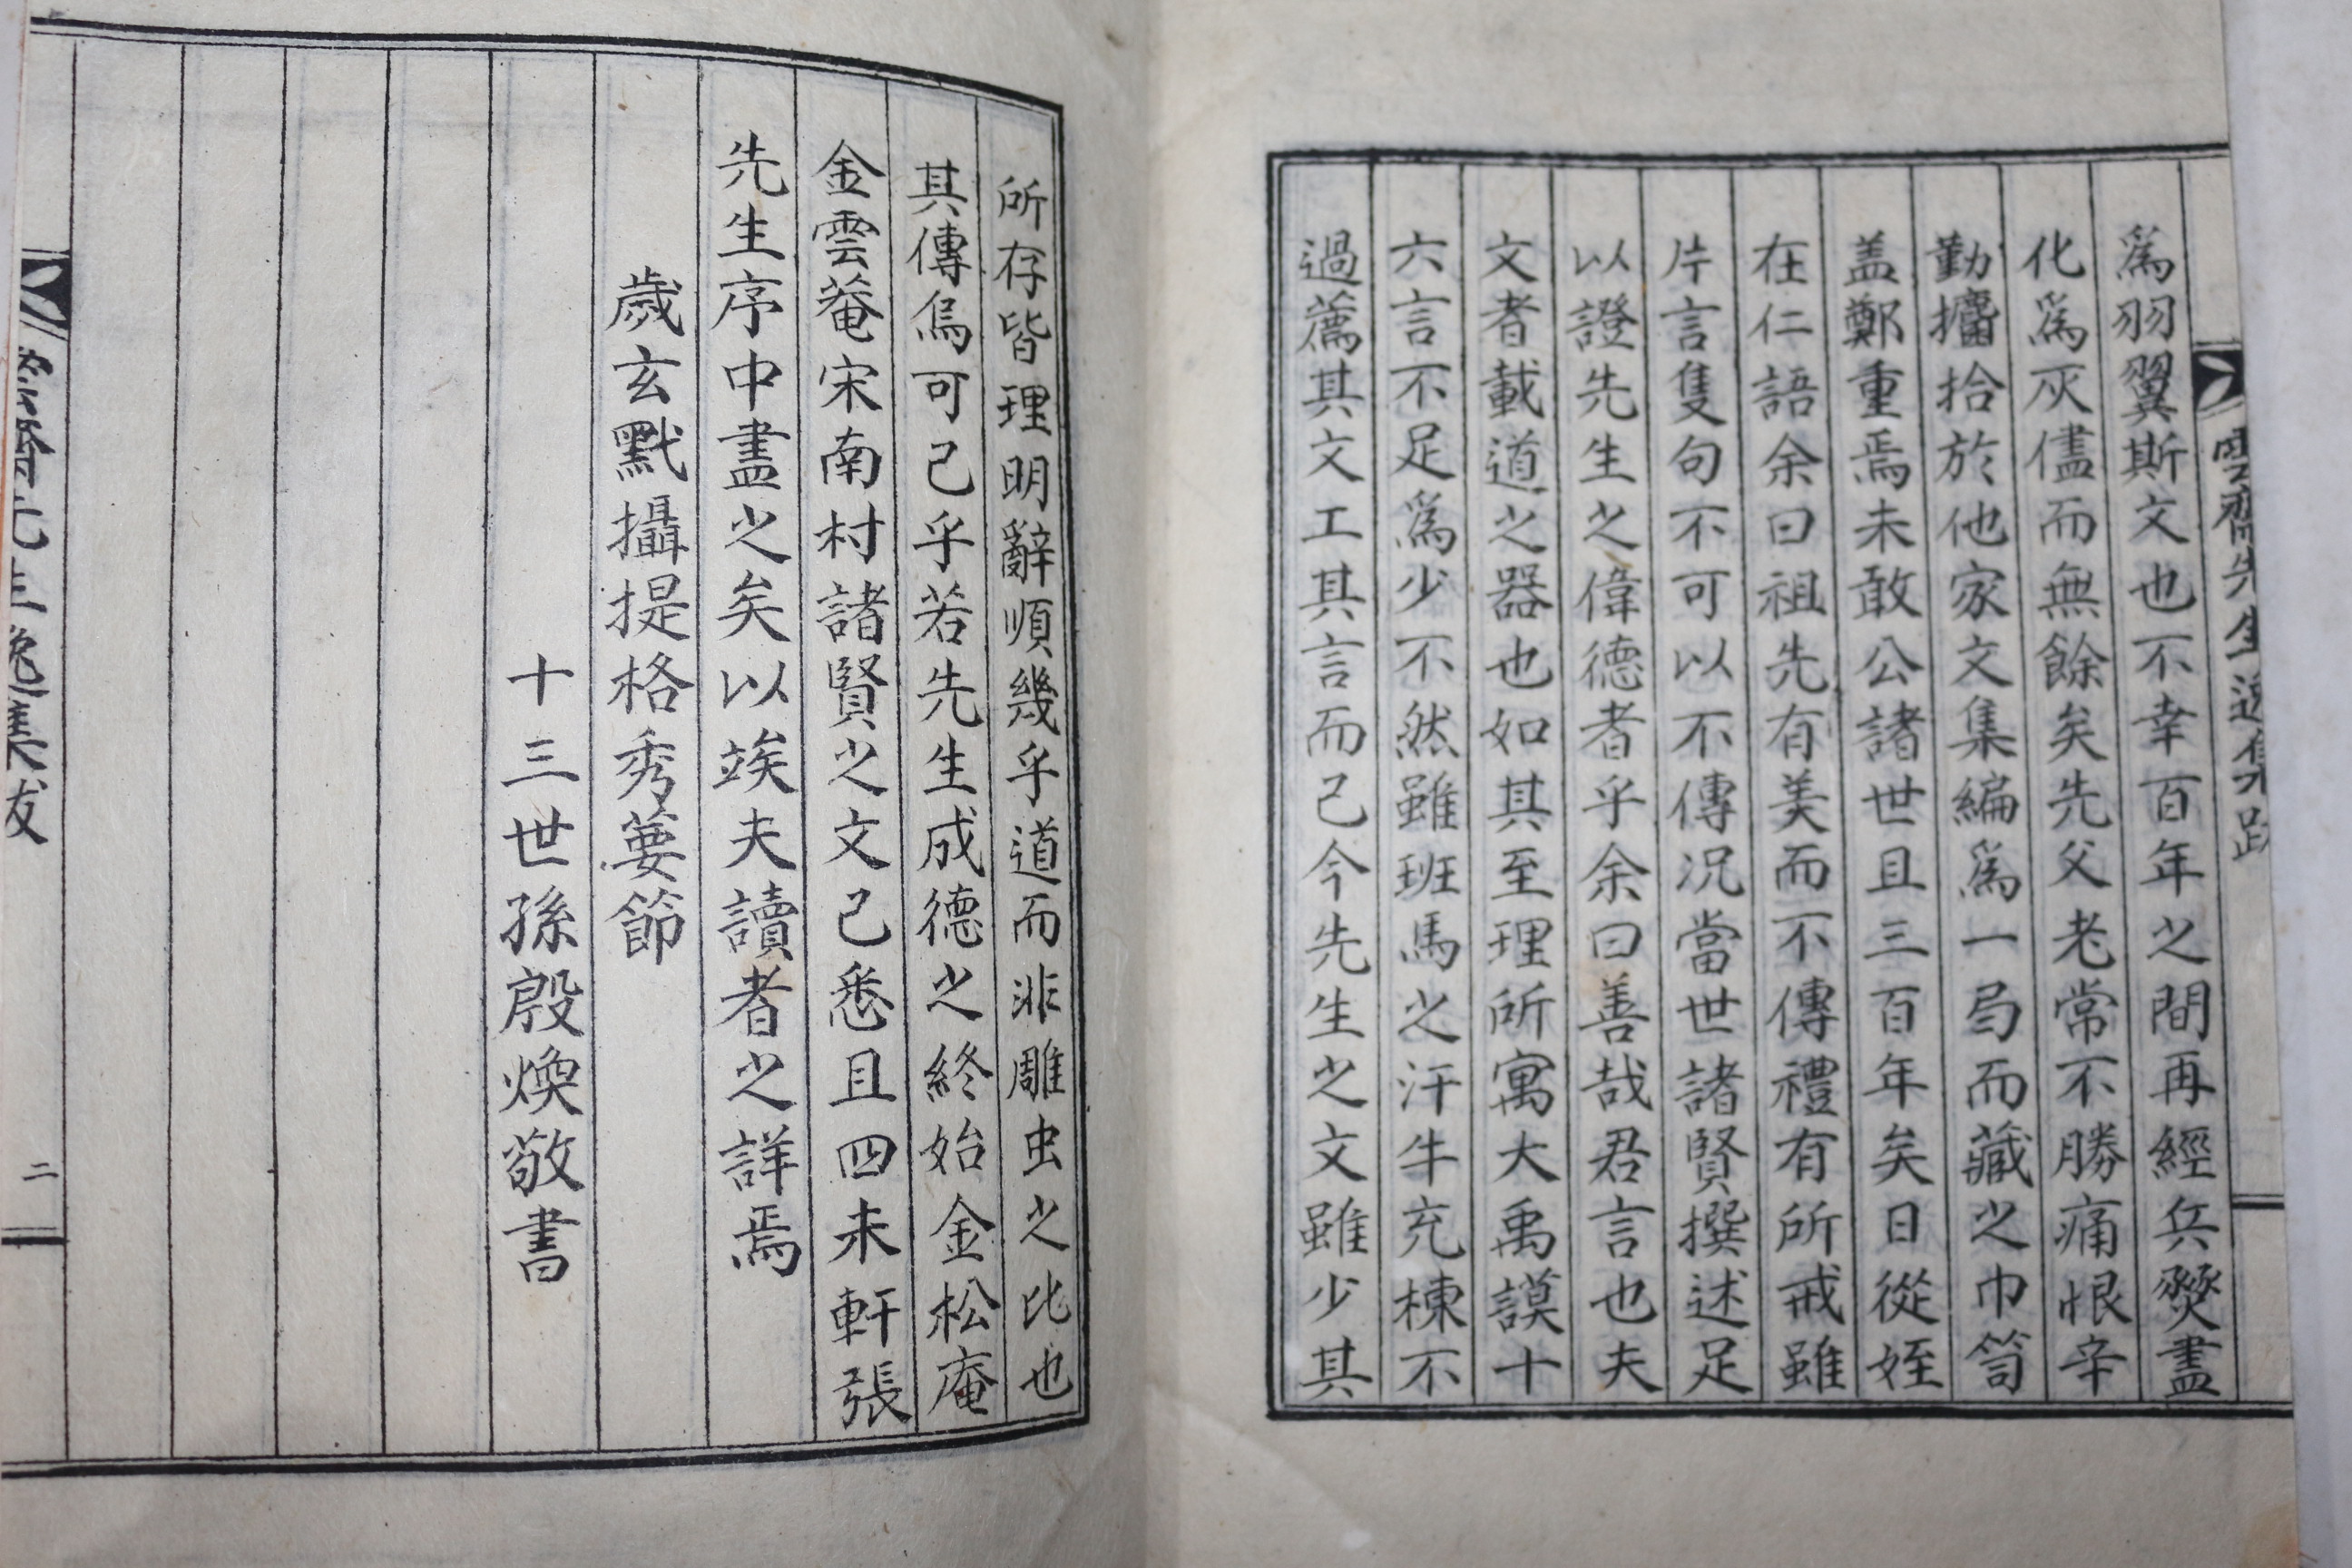 雲齋先生逸集跋
爲羽翼斯文也不幸百年之間再經兵燹盡
化爲灰儘而無餘矣先父老常不勝痛恨辛
勤攟拾於他家文集編爲一局而藏之巾笥
盖鄭重焉未敢公諸世且三百年矣日從姪
在仁語余曰祖先有美而不傳禮有所戒雖
片言隻句不可以不傳况當世諸賢撰述足
以證先生之偉德者乎余曰善哉君言也夫
文者載道之器也如其至理所寓大禹謨十
六言不足爲少不然雖班馬之汗牛充棟不
過薦其文工其言而己今先生之文雖少其
所存皆理明辭順幾乎道而非雕虫之比也
其傳烏可己乎若先生成德之終始金松庵
金雲菴宋南村諸賢之文己悉且四未軒張
先生序中盡之矣以竢夫讀者之詳焉
歲玄黓攝提格秀葽節
十三世孫殷煥敬書
先生逸集跋
二